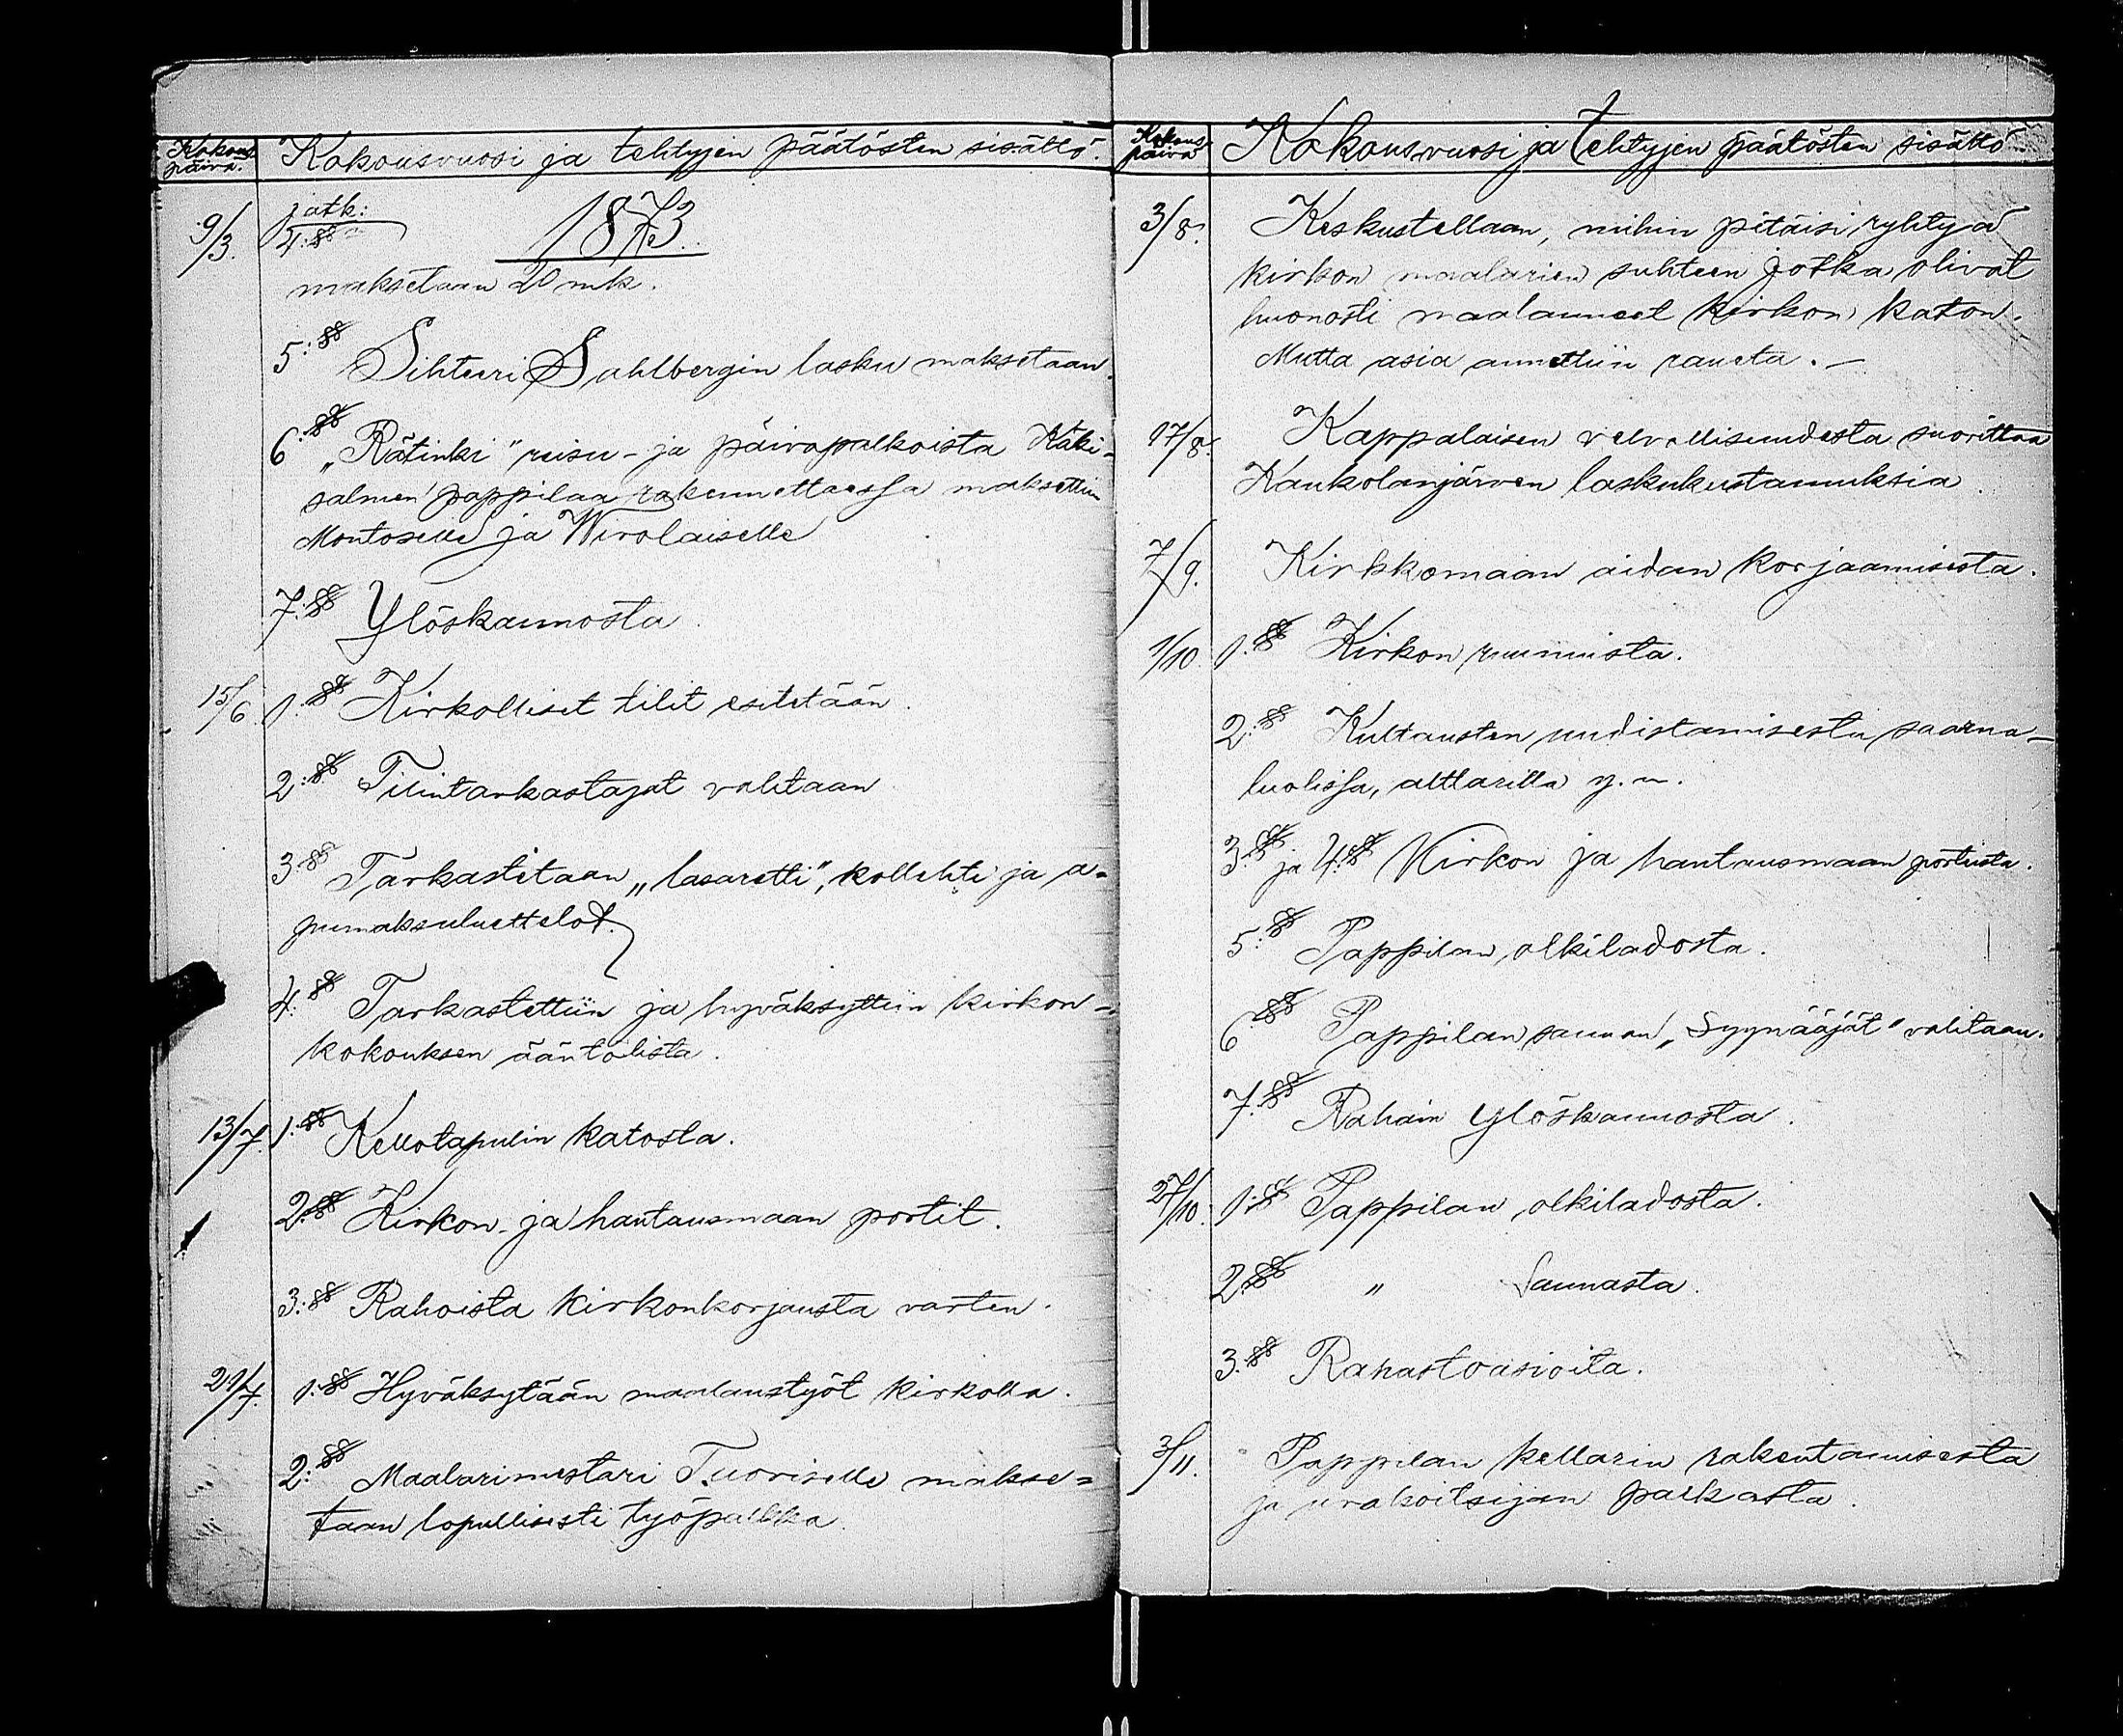 Kokous-
päivä.
Kokousvuosi ja tehtyjen päätösten sisältö.
9/3.
jatk:
4:§§
1873
maksetaan 20 mk.
5:§§ Sihteeri Sahlbergin lasku maksetaan.
6:§§ „Rätinki" reisu- ja päiväpalkoista Käki-
salmen pappilaa rakennettaessa maksettiin
Montoselle ja Wirolaiselle
7:§§ Ylöskannosta.
15/6. 1:§§ Kirkolliset tilit esitetään.
2:§§ Tilintarkastajat valitaan
3:§§ Tarkastetaan „lasaretti", kollehti ja a-
pumaksuluettelot.
4:§§ Tarkastettiin ja hyväksyttiin kirkon-
kokouksen ääntölista.
13/7. 1:§§ Kellotapulin katosta.
2:§§ Kirkon- ja hautausmaan portit.
3:§§ Rahoista kirkonkorjausta varten.
21/7. 1:§§ Hyväksytään maalaustyöt kirkolla.
2:§§ Maalarimestari Tuoriselle makse-
taan lopullisesti työpalkka
Kokous-
päivä
Kokousvuosi ja tehtyjen päätösten sisältö
3/8. Keskustellaan, mihin pitäisi ryhtyä
kirkon maalarien suhteen jotka olivat
huonosti maalanneet kirkon katon.
Mutta asia annettiin raueta. —
17/8. Kappalaisen velvollisuudesta suorittaa
Kaukolanjärven laskukustannuksia.
7/9. Kirkkomaan aidan korjaamisesta.
1/10. 1:§§ Kirkon ruumista.
2:§§ Kultausten uudistamisesta saarna-
tuolissa, alttarilla y.m.
3:§§ ja 4:§§ Kirkon ja hautausmaan portista.
5:§§ Pappilan olkiladosta.
6:§§ Pappilan saunan „Syynääjät" valitaan.
7:§§ Rahain ylöskannosta.
27/10. 1:§§ Pappilan olkiladosta.
2:§§ " Saunasta.
3:§§ Rahastoasioita.
3/11. Pappilan kellarin rakentamisesta
ja urakoitsijan palkasta.